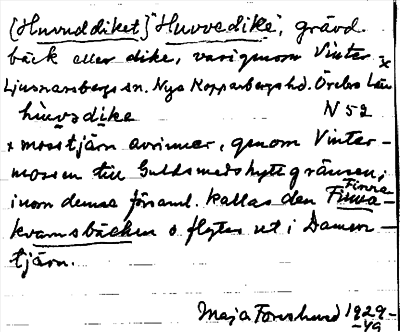 [Huvuddiket] "Huvvedike", grävd
bäck eller dike, varigenom Vinter- x
Ljusnarsbergs sn. Nya Kopparbergs hd. Örebro län
huvvdike N 52
x mosstjärn avrinner, genom Vinter-
mossen till Guldsmedshyttegränsen,
inom denna församl. kallas den Finna-
kvarnsbäcken o flyter ut i Damm-
tjärn.
Maja Forslund 1929-
-49